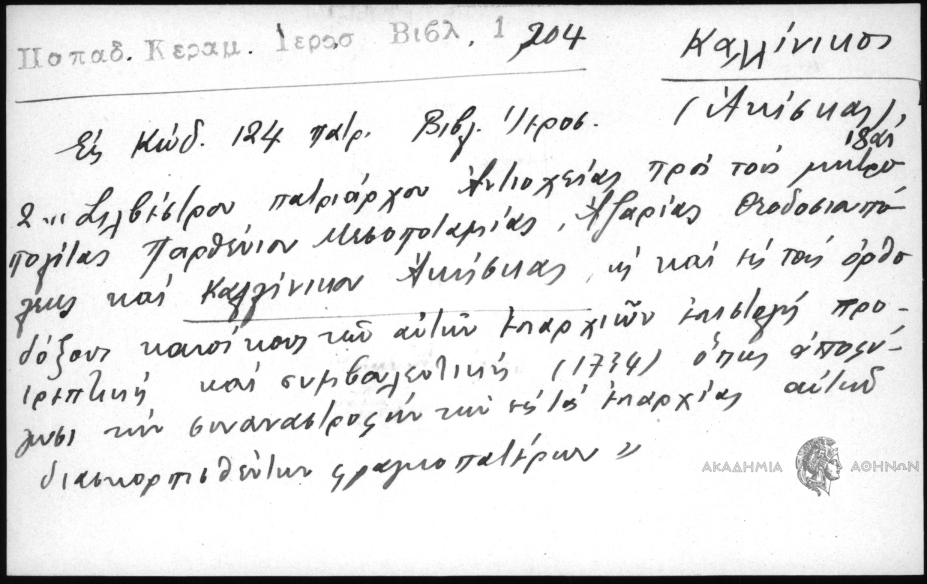 Παπαδ. Κεραμ. Ιεροσ Βιβλ. 1 204
Καλλίνικος
(Ἀκίσκας),
Εἰς Κώδ. 124 πατρ. Βιβλ. Ἱεροσ.
2 " Σιλβέστρου πατριάρχου Ἀντιοχείας πρὸς τοὺς μητρο
πολίτας Παρθένιον Μεσοποταμίας, Ἀζαρίας Θεοδοσιουπό
λεως καὶ Καλλίνικον Ἀκίσκας, καὶ εἰς τοὺς ὀρθο
δόξους κατοίκους τῶν αὐτῶν ἐπαρχιῶν ἐπιστολὴ προ-
τρεπτικὴ καὶ συμβουλευτικὴ (1734) ὅπως ἀποφύ-
γωσι τὴν συναναστροφὴν τῶν εἰς τὰς ἐπαρχίας αὐτῶν
διασκορπισθέντων φραγκοπατέρων "
ΑΚΑΔΗΜΙΑ ΑΘΗΝΩΝ